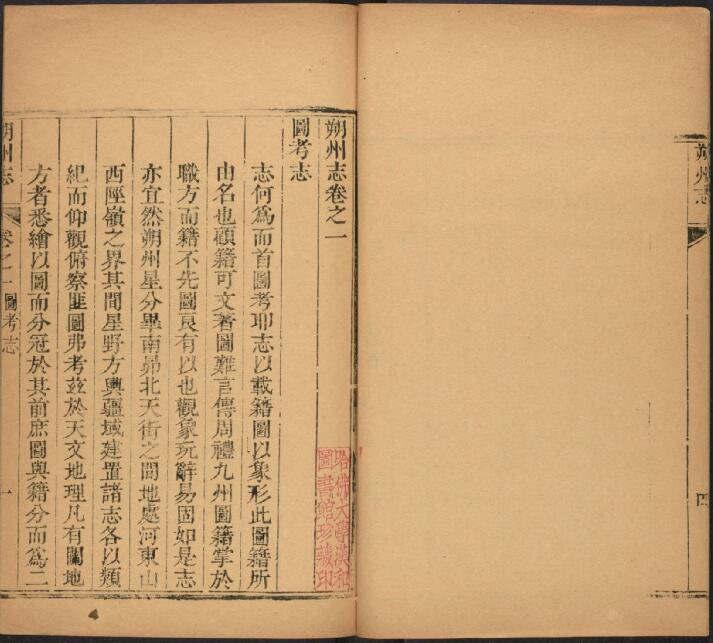 朔州志
四
朔州志卷之一
圖考志
志何爲而首圖考耶志以載籍圖以象形此圖籍所
由名也顧籍可文著圖難言傳周禮九州圖籍掌於
職方而籍不先圖良有以也觀象玩辭易固如是志
亦宜然朔州星分畢南昴北天街之間地處河東山
西陘嶺之界其間星野方輿疆域建置諸志各以類
紀而仰觀俯察匪圖弗考茲於天文地理凡有關地
方者悉繪以圖而分冠於其前庶圖與籍分而爲二
朔州志
卷之一圖考志
一
哈佛大學漢和
圖書館珍藏印
4